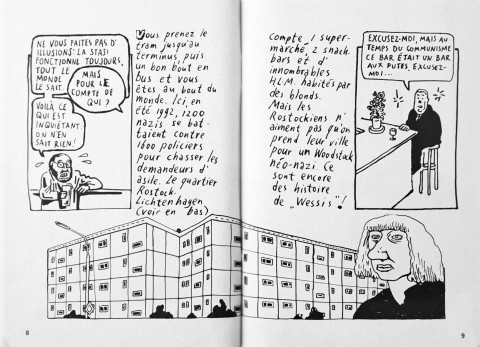 NE VOUS FAITES PAS D'
ILLUSIONS: LA STASI
FONCTIONNE TOUJOURS,
TOUT LE
MONDE
LE SAIT.
MAIS
POUR LE
COMPTE DE
QUI ?
VOILÀ CE
QUI EST
INQUIÉTANT:
ON N'EN
SAIT RIEN!
Vous prenez le
tram jusqu'au
terminus, puis
un bon bout en
bus et vous
êtes au bout du
monde. Ici, en
été 1992, 1200
nazis se bat-
taient contre
1600 policiers
pour chasser les
demandeurs d'
asile. Le quartier
Rostock-
Lichtenhagen
(voir en bas)
8
compte 1 super-
marché, 2 snack-
bars et d'
innombrables
H.L.M. habités par
des blonds.
Mais les
Rostockiens n'
aiment pas qu'on
prend leur ville
pour un Woodstock
néo-nazi. Ce
sont encore
des histoire
de „Wessis"!
EXCUSEZ-MOI, MAIS AU
TEMPS DU COMMUNISME
CE BAR ÉTAIT UN BAR
AUX PUTES, EXCUSEZ-
MOI...
9